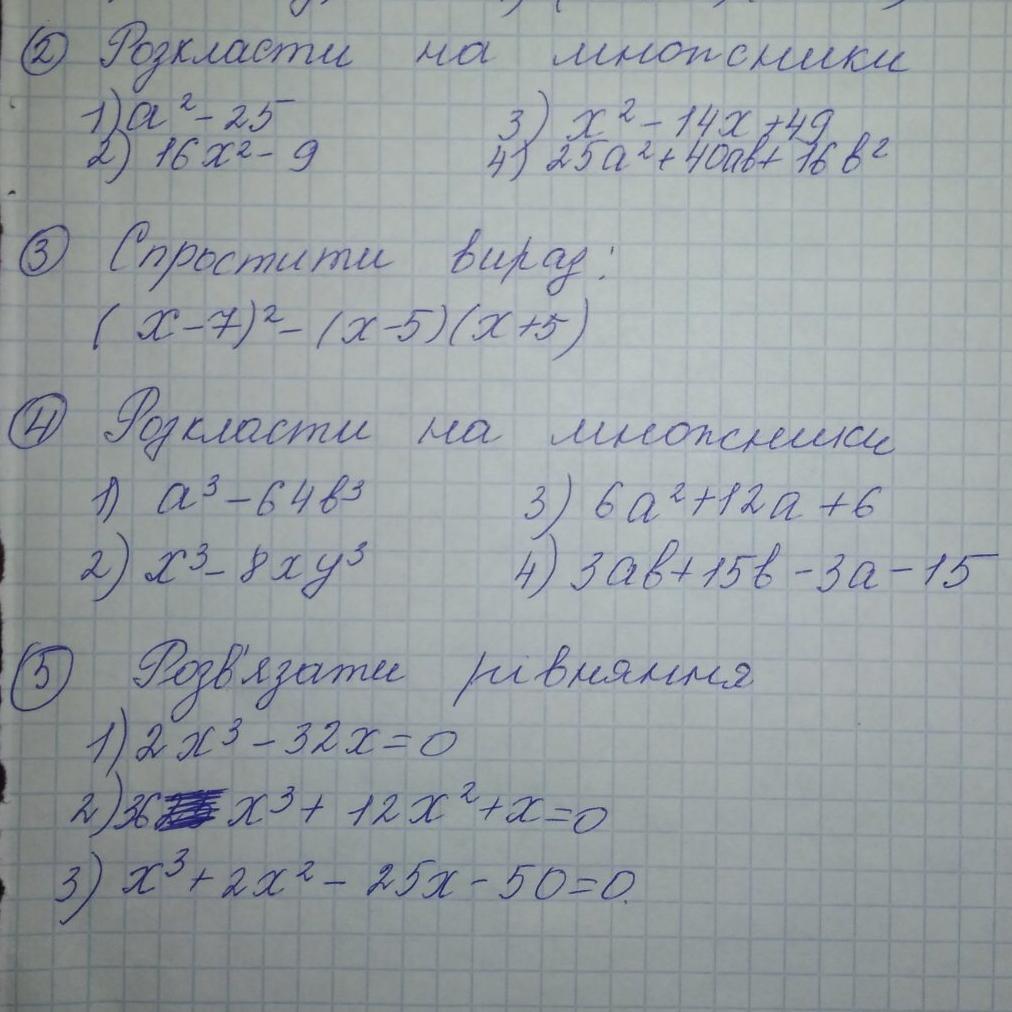 ② Розкласти на множники
1) a² - 25 3) x² - 14x + 49
2) 16x² - 9 4) 25a² + 40ab + 16b²
③ Спростити вираз:
(x - 7)² - (x - 5)(x + 5)
④ Розкласти на множники
1) a³ - 64b³ 3) 6a² + 12a + 6
2) x³ - 8xy³ 4) 3ab + 15b - 3a - 15
⑤ Розв'язати рівняння
1) 2x³ - 32x = 0
2) 36x³ + 12x² + x = 0
3) x³ + 2x² - 25x - 50 = 0.